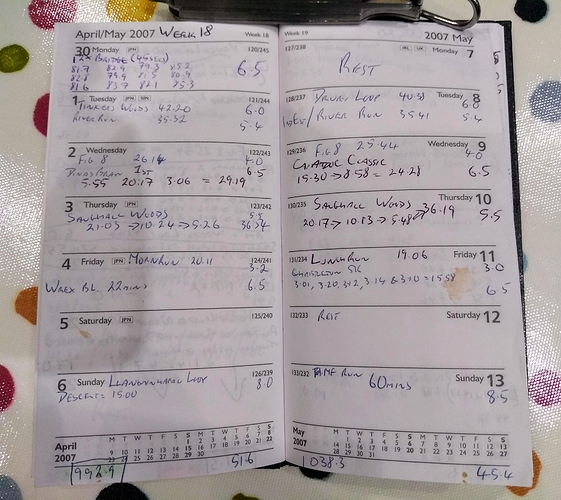 April/May 2007 WEEK 18
Week 18
30 Monday JPN
120/245
12 x BRIDGE (45 SECS)
81.7 82.9 79.3 85.2
82.8 79.9 81.5 80.9
81.6 83.7 82.1 85.3
6.5
1 Tuesday
121/244
TINKERS WOODS 42.20
6.0
RIVER RUN 35.32
5.4
2 Wednesday
122/243
FIG 8 26.14
4.0
1ST
6.5
5.55 20.17 3.06 = 29.19
3 Thursday JPN
123/242
SAUGHALL WOODS
5.5
21.03 → 10.24 → 5.26
36.54
4 Friday JPN MORN RUN 20.11
124/241
3.2
WREX BL. 22 mins
6.5
5 Saturday JPN
125/240
6 Sunday LLANGYNHAFAL LOOP
126/239
8.0
DESCENT = 15.00
April 2007
M T W T F S S M T W T F S S
9 10 11 12 13 14 15 16 17 18 19 20 21 22
23 24 25 26 27 28 29 30
992.9
51.6
Week 19
2007 May
127/238
Monday 7
REST
128/237
Tuesday 8
LOOP 40.38
6.0
RIVER RUN 35.41
5.4
129/236
Wednesday 9
FIG 8 25.44
4.0
CLASSIC
15.30 → 8.58 = 24.28
6.5
130/235
Thursday 10
SAUGHALL WOODS 36.19
20.17 → 10.13 → 5.48
5.5
131/234
Friday 11
LUNCH RUN 19.06
3.0
CHRISTLETON 5K
3.01, 3.20, 3.12, 3.14 & 3.10 = 15.58
6.5
132/233
Saturday 12
REST
133/232
Sunday 13
TIME RUN 60 MINS
8.5
May 2007
M T W T F S S M T W T F S S
14 15 16 17 18 19 20 21 22 23 24 25 26 27
28 29 30 31
1038.3
45.4